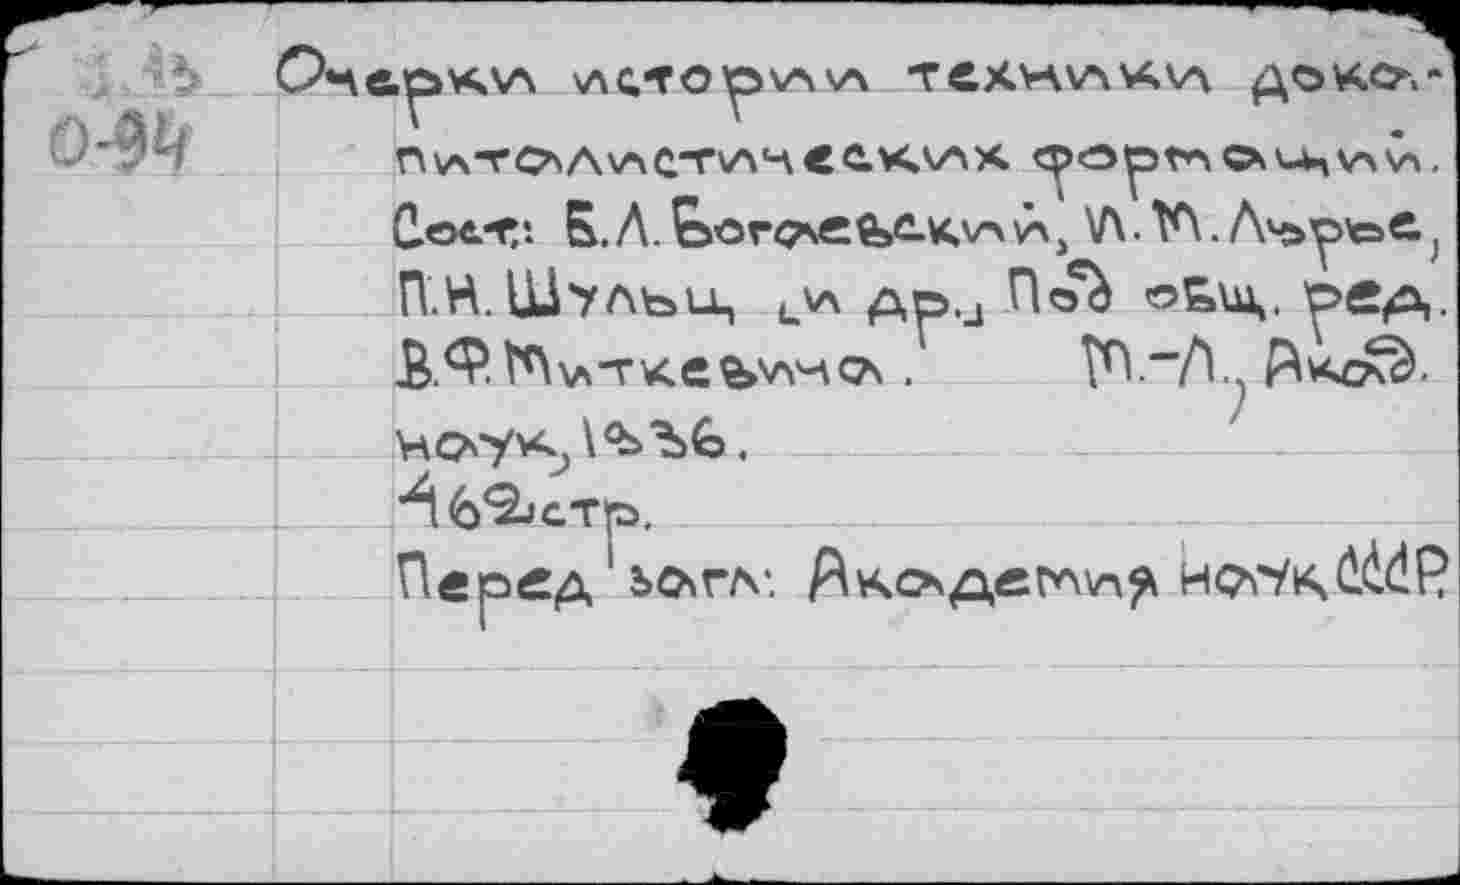 Очерки истории техники дока-
О-94
питалистических формаций.
Сост: Б.Л. Богаевский, И.М. Лурье,
П.Н. Шульц, [и др.] Под общ. ред.
В.Ф. Миткевича. М.-Л., Акад.
наук, 1936.
462 стр.
Перед загл: Академия наук СССР.